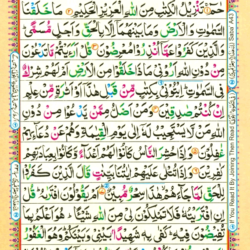 حٰمٓ تَنْزِیْلُ الْکِتٰبِ مِنَ اللّٰهِ الْعَزِیْزِ الْحَکِیْمِ مَا خَلَقْنَا
السَّمٰوٰتِ وَالْاَرْضَ وَمَا بَیْنَهُمَاۤ اِلَّا بِالْحَقِّ وَاَجَلٍ مُّسَمًّی
وَالَّذِیْنَ کَفَرُوْا عَمَّاۤ اُنْذِرُوْا مُعْرِضُوْنَ قُلْ اَرَءَیْتُمْ مَّا تَدْعُوْنَ
مِنْ دُوْنِ اللّٰهِ اَرُوْنِیْ مَاذَا خَلَقُوْا مِنَ الْاَرْضِ اَمْ لَهُمْ شِرْكٌ
فِی السَّمٰوٰتِ اِیْتُوْنِیْ بِکِتٰبٍ مِّنْ قَبْلِ هٰذَاۤ اَوْ اَثٰرَةٍ مِّنْ عِلْمٍ
اِنْ کُنْتُمْ صٰدِقِیْنَ وَمَنْ اَضَلُّ مِمَّنْ یَّدْعُوْا مِنْ دُوْنِ
اللّٰهِ مَنْ لَّا یَسْتَجِیْبُ لَهٗۤ اِلٰی یَوْمِ الْقِیٰمَةِ وَهُمْ عَنْ دُعَآئِهِمْ
غٰفِلُوْنَ وَاِذَا حُشِرَ النَّاسُ کَانُوْا لَهُمْ اَعْدَآءً وَّکَانُوْا بِعِبَادَتِهِمْ
کٰفِرِیْنَ وَاِذَا تُتْلٰی عَلَیْهِمْ اٰیٰتُنَا بَیِّنٰتٍ قَالَ الَّذِیْنَ کَفَرُوْا
لِلْحَقِّ لَمَّا جَآءَهُمْ هٰذَا سِحْرٌ مُّبِیْنٌ اَمْ یَقُوْلُوْنَ افْتَرٰىهُ قُلْ
اِنِ افْتَرَیْتُهٗ فَلَا تَمْلِکُوْنَ لِیْ مِنَ اللّٰهِ شَیْئًا هُوَ اَعْلَمُ بِمَا
If You Read It By Joining Then Read